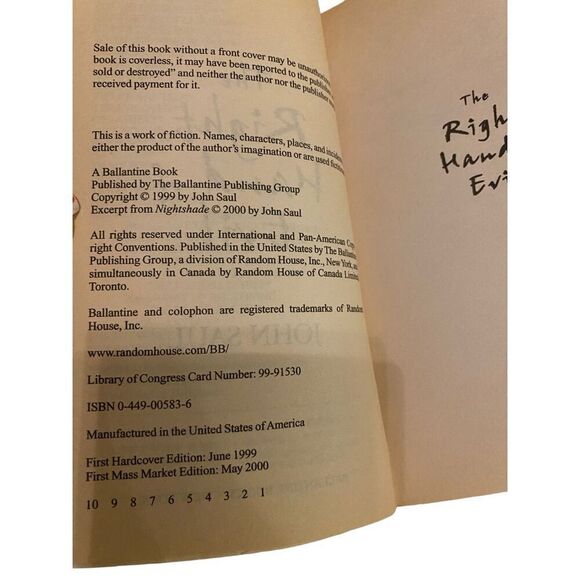 Sale of this book without a front cover may be unauthorized
book is coverless, it may have been reported to the publisher
sold or destroyed" and neither the author nor the publisher
received payment for it.
This is a work of fiction. Names, characters, places, and
either the product of the author's imagination or are used
A Ballantine Book
Published by The Ballantine Publishing Group
Copyright © 1999 by John Saul
Excerpt from Nightshade © 2000 by John Saul
All rights reserved under International and Pan-American
right Conventions. Published in the United States by The
Publishing Group, a division of Random House, Inc., New York, and
simultaneously in Canada by Random House of Canada
Toronto.
Ballantine and colophon are registered trademarks of Random
House, Inc.
www.randomhouse.com/BB/
Library of Congress Card Number: 99-91530
ISBN 0-449-00583-6
Manufactured in the United States of America
First Hardcover Edition: June 1999
First Mass Market Edition: May 2000
10 9 8 7 6 5 4 3 2 1
The
Righ
Hand
Evi